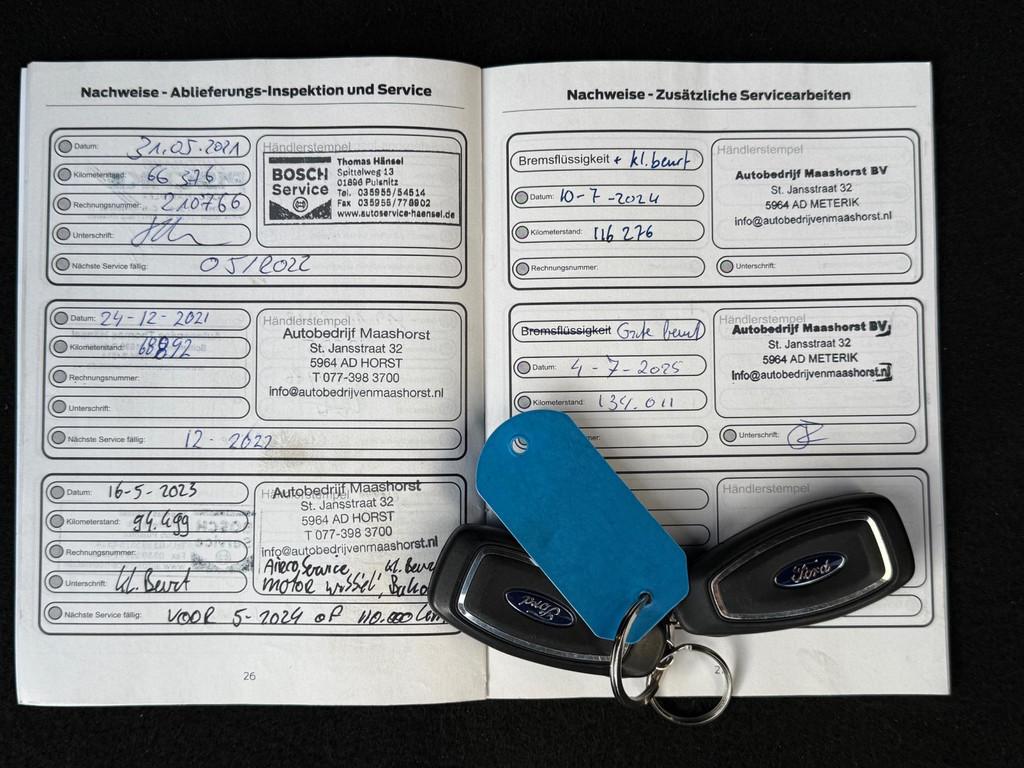 Nachweise - Ablieferungs-Inspektion und Service
Datum: 31.05.2021
Kilometerstand: 66 376
Rechnungsnummer: 210766
Unterschrift:
Nächste Service fällig: 05/2022
Händlerstempel
BOSCH
Service
Thomas Hänsel
Spittelweg 13
01896 Pulsnitz
Tel. 035955/54514
Fax 035955/778902
www.autoservice-haensel.de
Datum: 24-12-2021
Kilometerstand: 68892
Rechnungsnummer:
Unterschrift:
Nächste Service fällig: 12-2022
Händlerstempel
Autobedrijf Maashorst
St. Jansstraat 32
5964 AD HORST
T 077-398 3700
info@autobedrijvenmaashorst.nl
Datum: 16-5-2023
Kilometerstand: 94.499
Rechnungsnummer:
Unterschrift: kl. Beurt
Nächste Service fällig: VOOR 5-2024 OF 110.000
Händlerstempel
Autobedrijf Maashorst
St. Jansstraat 32
5964 AD HORST
T 077-398 3700
info@autobedrijvenmaashorst.nl
Airco Service, kl. Beurt
MOTOR
26
Nachweise - Zusätzliche Servicearbeiten
Bremsflüssigkeit + kl. beurt
Datum: 10-7-2024
Kilometerstand: 116 276
Rechnungsnummer:
Unterschrift:
Händlerstempel
Autobedrijf Maashorst BV
St. Jansstraat 32
5964 AD METERIK
info@autobedrijvenmaashorst.nl
Bremsflüssigkeit Grote beurt
Datum: 4-7-2025
Kilometerstand: 134.011
Unterschrift:
Autobedrijf Maashorst BV
St. Jansstraat 32
5964 AD METERIK
info@autobedrijvenmaashorst.nl
Händlerstempel
Ford
Ford